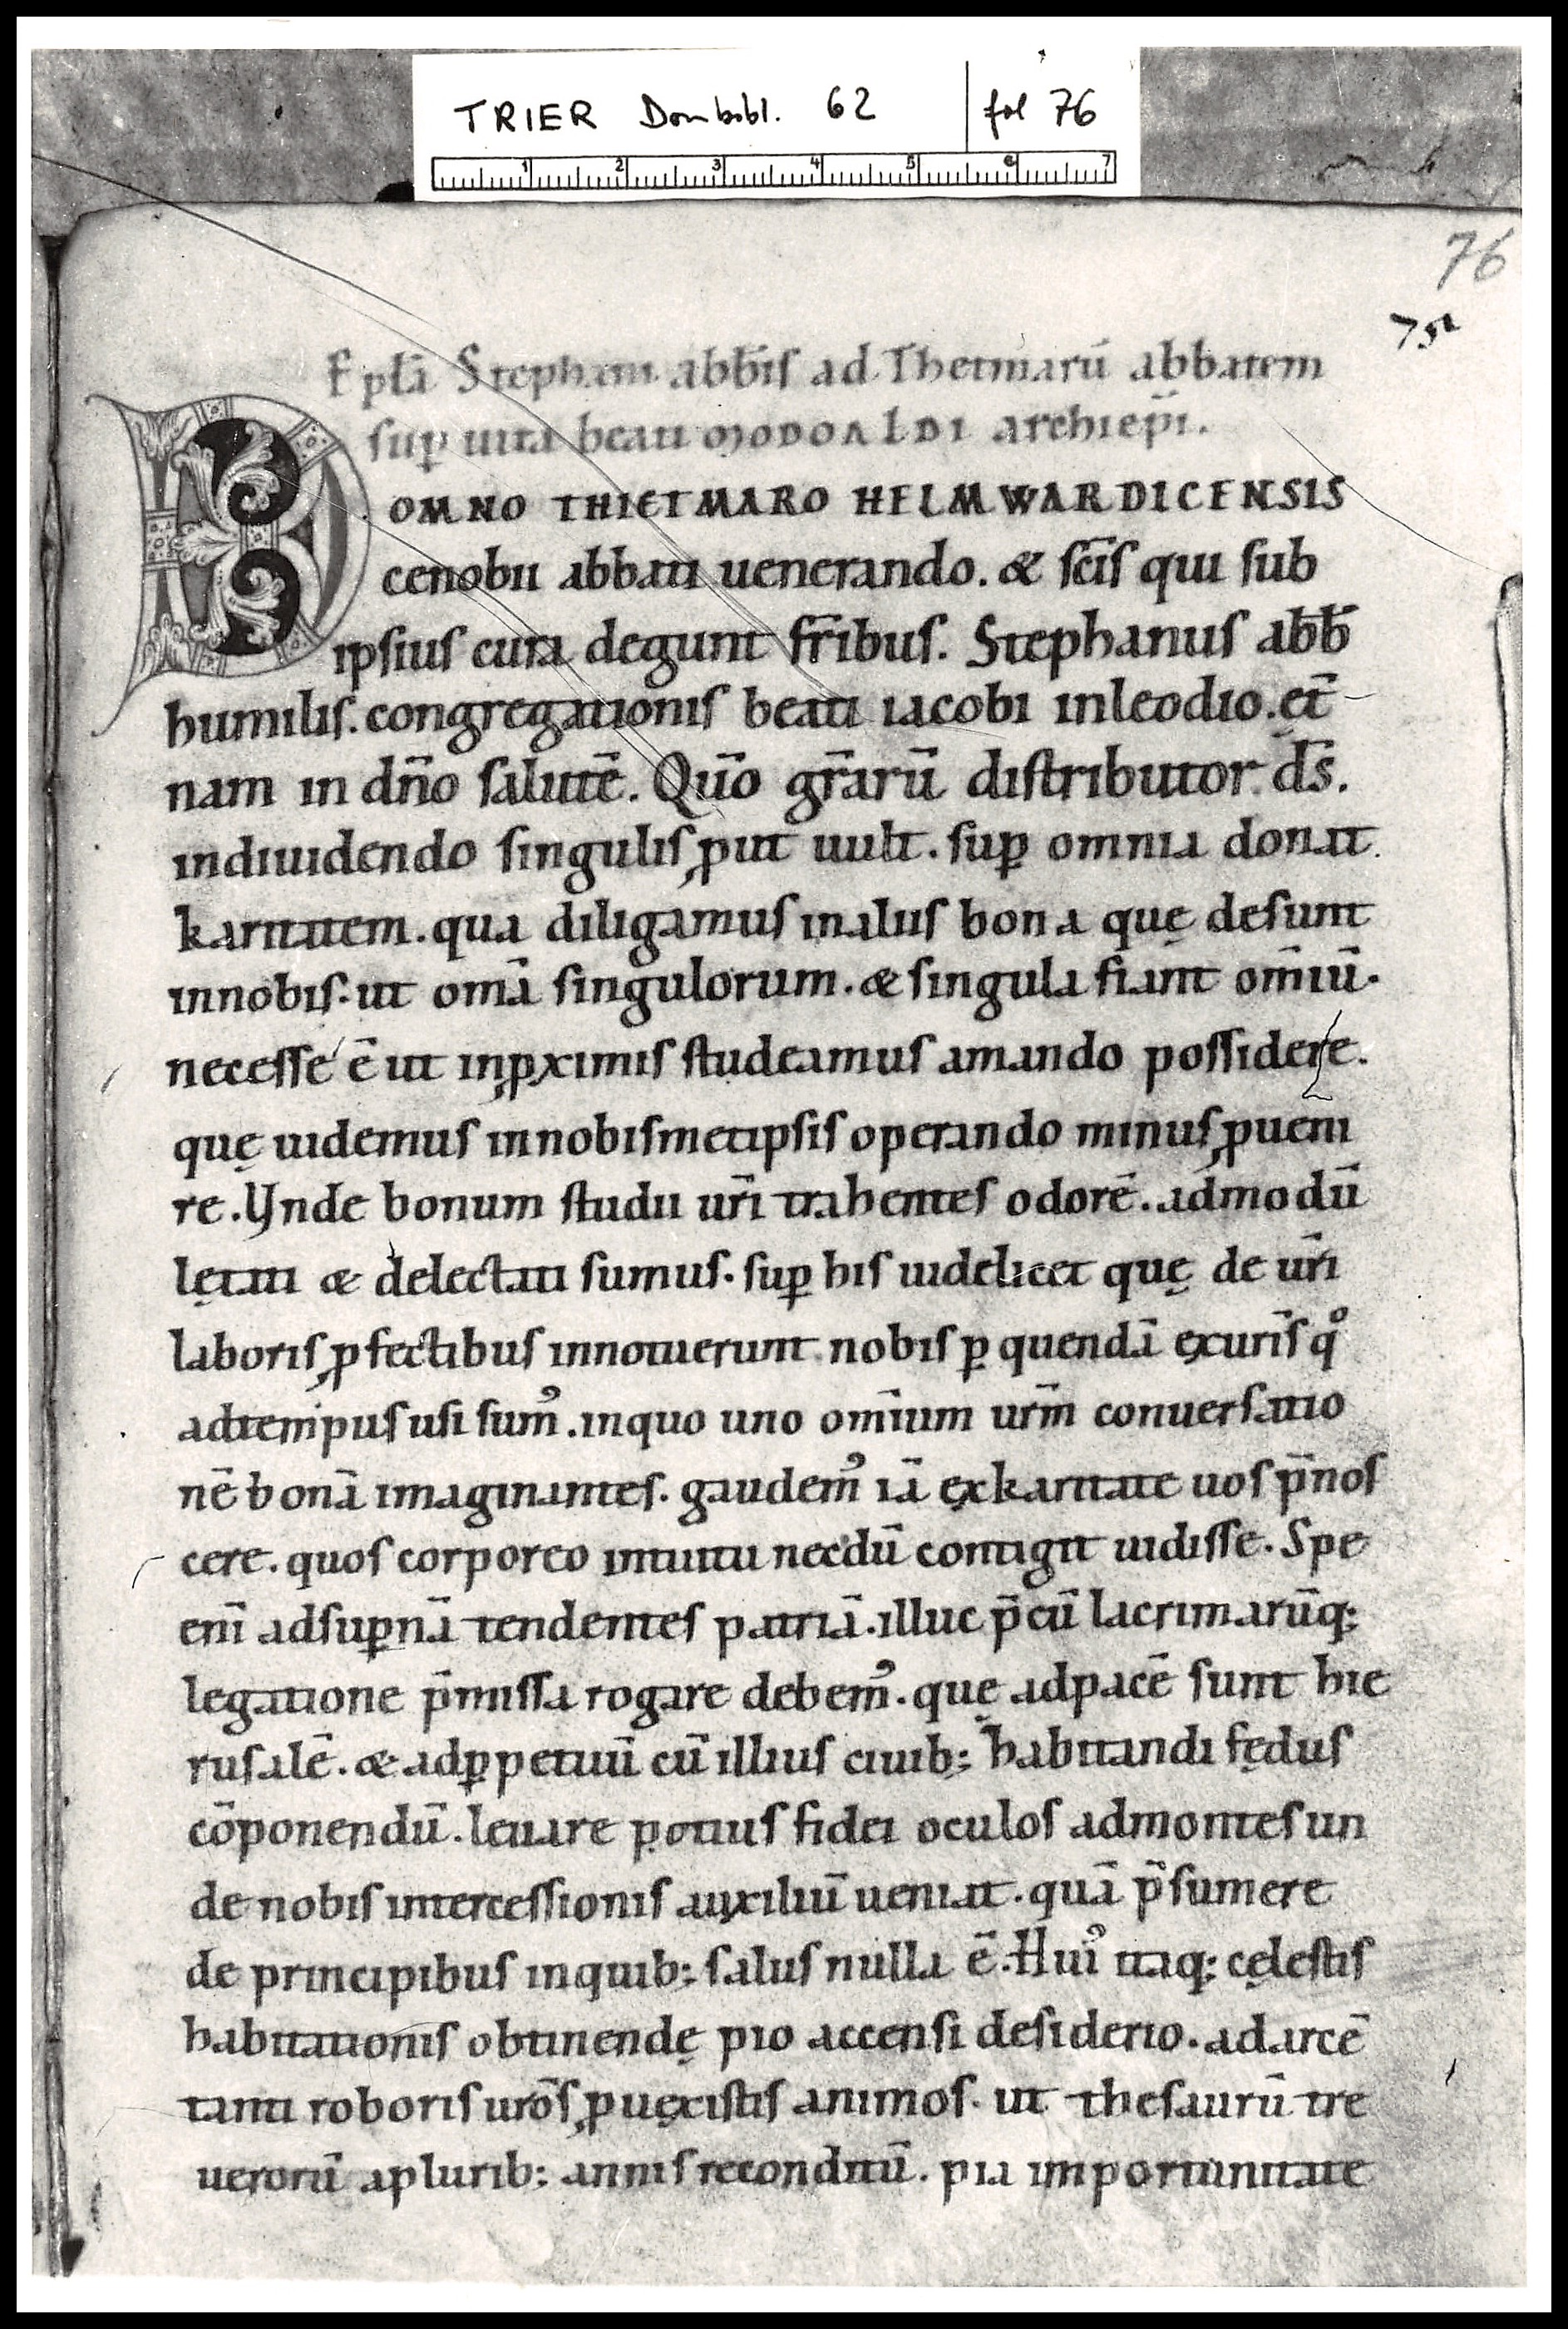 TRIER Dombibl. 62 | fol 76
1 2 3 4 5 6 7
76
Epła Stephani abb̄is ad Thetmarū abbatem
suꝑ uita beati MODOALDI archiep̄i.
DOMNO THIETMARO HELMWARDICENSIS
cenobii abbati uenerando. & sc̄is qui sub
ipsius cura degunt fr̄ibus. Stephanus abb̄
humilis. congregationis beati iacobi inleodio. et̄
nam in dn̄o salutē. Quō gr̄arū distributor d̄s.
indiuidendo singulis ꝓut uult. suꝑ omnia donat
karitatem. qua diligamus inaliis bona quę desunt
innobis. ut om̄a singulorum. & singula fiant om̄iū.
necesse ē ut inꝓximis studeamus amando possidere.
quę uidemus innobismetipsis operando minus ꝓueni
re. Vnde bonum studii ur̄i trahentes odorē. admodū
lętati & delectati sumus. suꝑ his uidelicet quę de ur̄i
laboris ꝓfectibus innotuerunt nobis ꝑ quendā exur̄is qͦ
adtempus usi sumꝰ. inquo uno om̄ium ur̄m conuersatio
nē bonā imaginantes. gaudemꝰ iā exkaritate uos p̄nos
cere. quos corporeo intuitu necdū contigit uidisse. Spe
eni̅ adsuꝑnā tendentes patriā. illuc p̄cū lacrimarūq;
legatione p̄missa rogare debemꝰ. quę adpacē sunt hie
rusalē. & adꝑpetuū cū illius ciuib; habitandi fędus
cōponendū. leuare potius fidei oculos admontes un
de nobis intercessionis auxiliū ueniat. quā p̄sumere
de principibus inquib; salus nulla ē. Huiꝰ itaq; cęlestis
habitationis obtinendę pio accensi desiderio. adarcē
tanti roboris urōs ꝓuexistis animos. ut thesaurū tre
uerorū aplurib; annis reconditū. pia importunitate